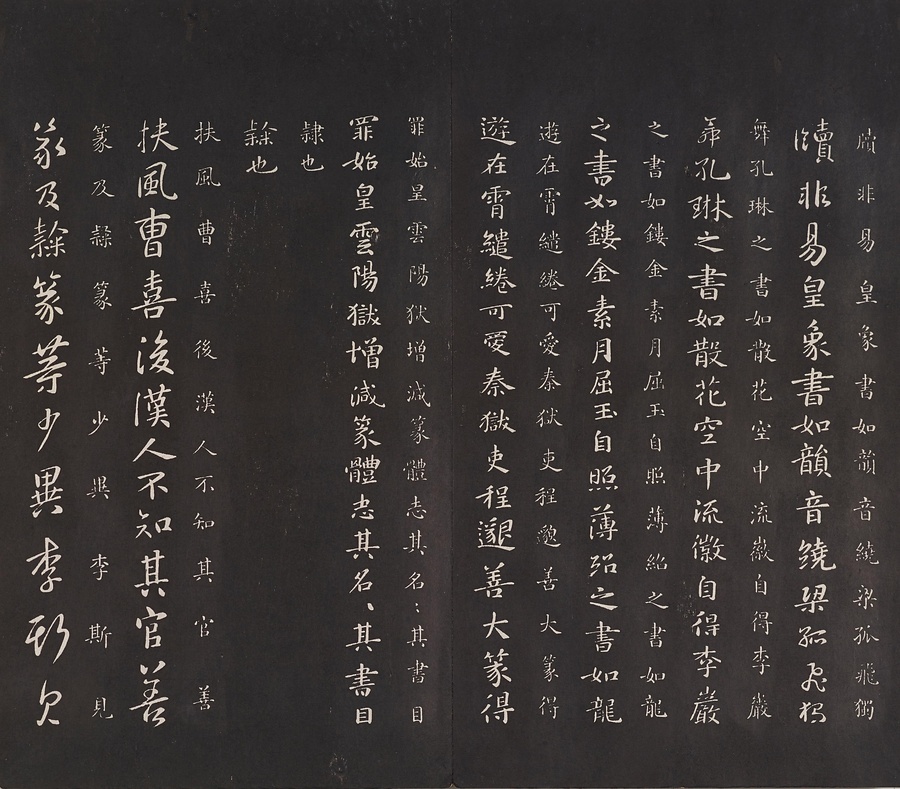 牘非易皇象書如韻音繞梁孤飛獨
牘非易皇象書如韻音繞梁孤飛獨
舞孔琳之書如散花空中流徽自得李巖
舞孔琳之書如散花空中流徽自得李巖
之書如鏤金素月屈玉自照薄紹之書如龍
之書如鏤金素月屈玉自照薄紹之書如龍
遊在霄繾綣可愛秦獄吏程邈善大篆得
遊在霄繾綣可愛秦獄吏程邈善大篆得
罪始皇雲陽獄增減篆體志其名〻其書目
罪始皇雲陽獄增減篆體志其名〻其書目
隸也
隸也
扶風曹喜後漢人不知其官善
扶風曹喜後漢人不知其官善
篆及隸篆等少異李斯見
篆及隸篆等少異李斯見